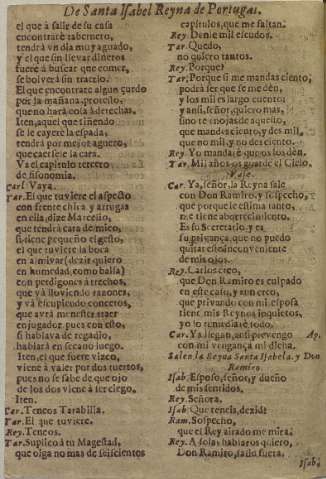 De Santa Isabel Reyna de Portugal.
el que à salir de su casa
encontrare tabernero,
tendrà vn dia muy aguado,
y el que sin llevar dineros
fuere à buscar que comer,
se bolverà sin traerlo.
El que encontrare algun çurdo
por la mañana, protesto,
que no harà cosa à derechas.
Iten, aquel que riñendo
se le cayere la espada,
tendrà por mejor aguero,
que caersele la cara.
Ya el capitulo tercero
de fisonomia.
Carl. Vaya.
Tar. El que tuviere el aspecto
con frente chica, y arrugas
en ella, dize Marcelio,
que tendrà cara de mico,
si tiene pequeño el gesto,
el que tuviere la boca
en almivar (dezir quiero
en humedad, como balsa)
con perdigones à trechos,
que và lloviendo razones,
y và escupiendo concetos,
que avrà menester traer
enjugador, pues con esto,
si hablava de regadio,
hablarà en secano luego.
Iten, el que fuere vizco,
viene à valer por dos tuertos,
pues no se sabe de que ojo
de los dos viene à ser ciego.
Iten.
Car. Teneos Tarabilla.
Tar. El que tuviere.
Rey. Teneos.
Tar. Suplico à tu Magestad,
que oiga no mas de seiscientos
capitulos, que me faltan.
Rey. Denle mil escudos.
Tar. Quedo,
no quiero tantos.
Rey. Porque?
Tar. Porque si me mandas ciento,
podrà ser que me dèn,
y los mil es largo cuento;
y ansi, señor, quiero mas,
sino te enojas de aquello,
que mandes ciento, y dès mil,
que no mil, y no dès ciento.
Rey. Yo mandarè que os los dèn.
Tar. Mil años os guarde el Cielo.
Vase.
Car. Ya, señor, la Reyna sale
con Don Ramiro, y sospecho,
que porque le estima tanto,
me tiene aborrecimiento.
Es su Secretario, y es
su privança, que no puedo
quitar este inconveniente
de mis ojos.
Rey. Carlos creo,
que Don Ramiro es culpado
en este caso, y aun creo,
que privando con mi esposa
tiene mis Reynos inquietos,
yo lo remediarè todo.
Car. Ya llegan, ansi prevengo Ap.
con mi vengança mi dicha.
Salen la Reyna Santa Isabela, y Don
Ramiro.
Isab. Esposo, señor, y dueño
de mis sentidos.
Rey. Señora.
Isab. Que teneis, dezid?
Ram. Sospecho,
que el Rey airado me mira.
Rey. A solas hablaros quiero,
Don Ramiro, salìos fuera.
Isab.